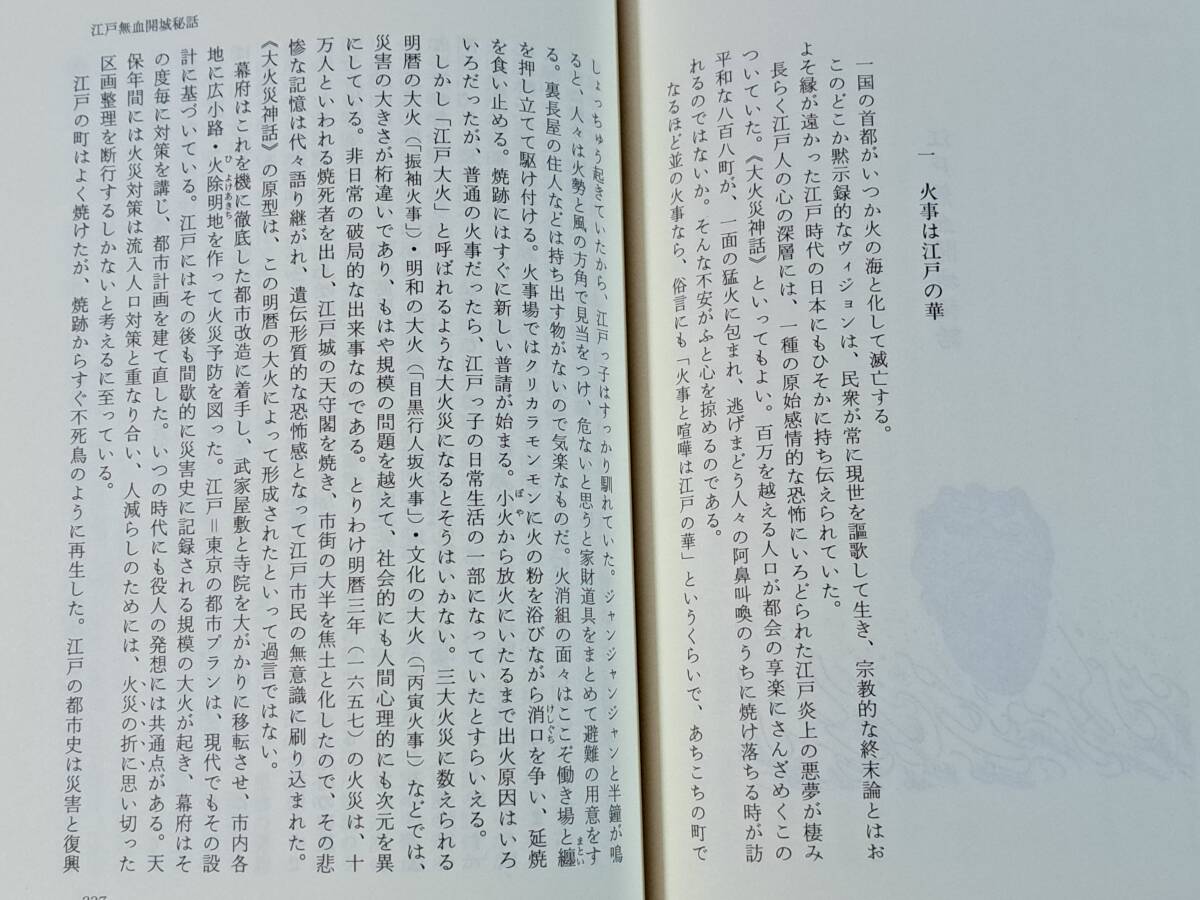 一　火事は江戸の華
一国の首都がいつか火の海と化して滅亡する。
このどこか黙示録的なヴィジョンは、民衆が常に現世を謳歌して生き、宗教的な終末論とはお
よそ縁が遠かった江戸時代の日本にもひそかに持ち伝えられていた。
長らく江戸人の心の深層には、一種の原始感情的な恐怖にいろどられた江戸炎上の悪夢が棲み
ついていた。《大火災神話》といってもよい。百万を越える人口が都会の享楽にさんざめくこの
平和な八百八町が、一面の猛火に包まれ、逃げまどう人々の阿鼻叫喚のうちに焼け落ちる時が訪
れるのではないか。そんな不安がふと心を掠めるのである。
なるほど並の火事なら、俗言にも「火事と喧嘩は江戸の華」というくらいで、あちこちの町で
しょっちゅう起きていたから、江戸っ子はすっかり馴れていた。ジャンジャンジャンと半鐘が鳴
ると、人々は火勢と風の方角で見当をつけ、危ないと思うと家財道具をまとめて避難の用意をす
る。裏長屋の住人などは持ち出す物がないので気楽なものだ。火消組の面々はここぞ働き場と纏まとい
を押し立てて駆け付ける。火事場ではクリカラモンモンに火の粉を浴びながら消口けしぐちを争い、延焼
を食い止める。焼跡にはすぐに新しい普請が始まる。小火ぼやから放火にいたるまで出火原因はいろ
いろだったが、普通の火事だったら、江戸っ子の日常生活の一部になっていたとすらいえる。
しかし「江戸大火」と呼ばれるような大火災になるとそうはいかない。三大火災に数えられる
明暦の大火（「振袖火事」）・明和の大火（「目黒行人坂火事」）・文化の大火（「丙寅火事」）などでは、
災害の大きさが桁違いであり、もはや規模の問題を越えて、社会的にも人間心理的にも次元を異
にしている。非日常の破局的な出来事なのである。とりわけ明暦三年（一六五七）の火災は、十
万人といわれる焼死者を出し、江戸城の天守閣を焼き、市街の大半を焦土と化したので、その悲
惨な記憶は代々語り継がれ、遺伝形質的な恐怖感となって江戸市民の無意識に刷り込まれた。
《大火災神話》の原型は、この明暦の大火によって形成されたといって過言ではない。
幕府はこれを機に徹底した都市改造に着手し、武家屋敷と寺院を大がかりに移転させ、市内各
地に広小路・火除明地ひよけあきちを作って火災予防を図った。江戸＝東京の都市プランは、現代でもその設
計に基づいている。江戸にはその後も間歇的に災害史に記録される規模の大火が起き、幕府はそ
の度毎に対策を講じ、都市計画を建て直した。いつの時代にも役人の発想には共通点がある。天
保年間には火災対策は流入人口対策と重なり合い、人減らしのためには、火災の折に思い切った
区画整理を断行するしかないと考えるに至っている。
江戸の町はよく焼けたが、焼跡からすぐ不死鳥のように再生した。江戸の都市史は災害と復興
江戸無血開城秘話